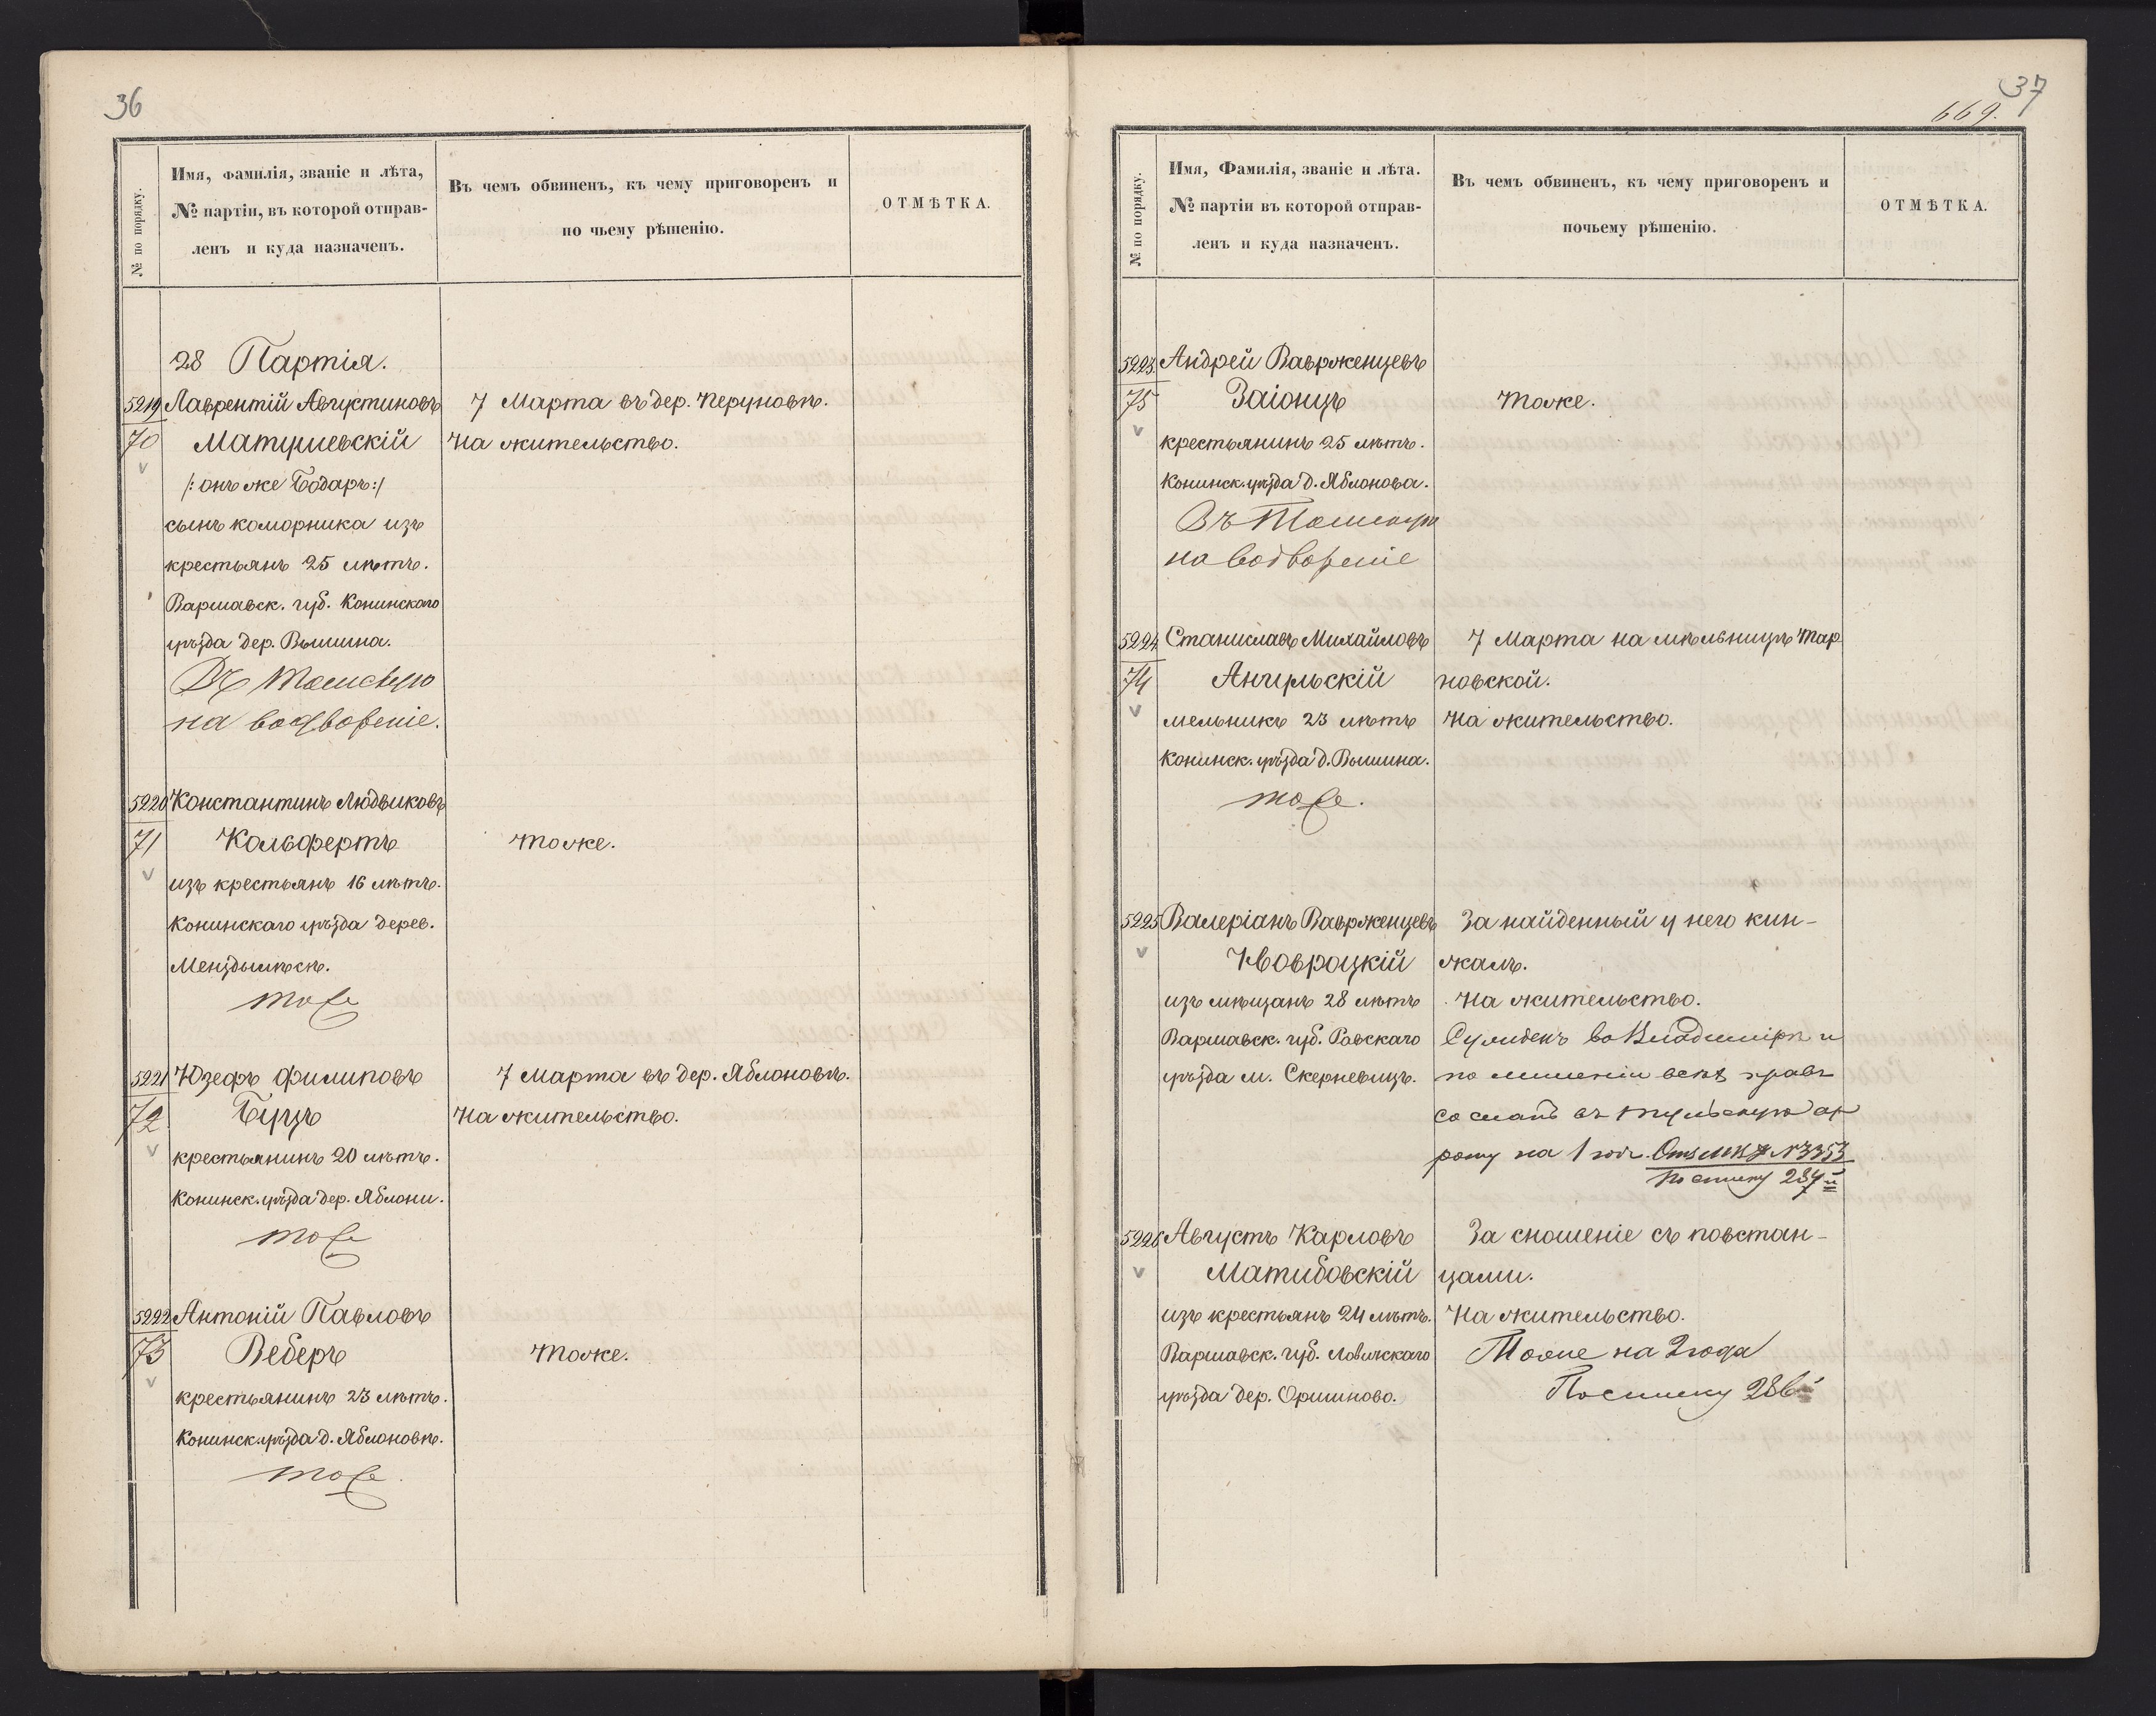 36
№ по порядку.
Имя, фамилія, званіе и лѣта,
№ партіи, въ которой отправ-
ленъ и куда назначенъ.
Въ чемъ обвиненъ, къ чему приговоренъ и
по чьему рѣшенію.
ОТМѢТКА.
28 Партія.
5219 Лаврентій Августиновъ
70 Матушевскій
/: онъ же Бодаръ :/
сынъ коморника изъ
крестьянъ 25 лѣтъ.
Варшавск. губ. Конинскаго
уѣзда дер. Вышина.
Въ Томскую
на водвореніе.
7 Марта въ дер. Перуновѣ.
На жительство.
5220 Константинъ Людвиковъ
71 Кольфертъ
изъ крестьянъ 16 лѣтъ.
Конинскаго уѣзда дерев.
тоже
тоже.
5221 Юзефъ Филиповъ
72 Буцъ
крестьянинъ 20 лѣтъ.
Конинск. уѣзда дер. Яблони.
тоже
7 Марта въ дер. Яблоновѣ.
На жительство.
5222 Антоній Павловъ
73 Веберъ
крестьянинъ 23 лѣтъ.
Конинск. уѣзда д. Яблоновѣ.
тоже.
тоже.
37
669.
№ по порядку.
Имя, Фамилія, званіе и лѣта.
№ партіи въ которой отправ-
ленъ и куда назначенъ.
Въ чемъ обвиненъ, къ чему приговоренъ и
почьему рѣшенію.
ОТМѢТКА.
5223 Андрей Вавржонцевъ
75 Заіонцъ
крестьянинъ 25 лѣтъ.
Конинск. уѣзда д. Яблонова.
Въ Томскую
на водвореніе
тоже.
5224 Станиславъ Михайловъ
74 Ангульскій
мельникъ 23 лѣтъ
Конинск. уѣзда д. Вышина.
тоже.
7 Марта на мѣльницѣ Тар
новской.
На жительство.
5225 Валеріанъ Вавржонцевъ
Новроцкій
изъ мѣщанъ 28 лѣтъ
Варшавск. губ. Равскаго
уѣзда м. Скерневицъ.
За найденный у него кин-
жалъ.
На жительство.
Сужденъ во Владимірѣ и
по лишеніи всѣхъ правъ
сосланъ въ Тульскую ар
роту на 1 годъ. № 3353
По списку 287й
5226 Августъ Карловъ
Матибовскій
изъ крестьянъ 24 лѣтъ.
Варшавск. губ. Ловичскаго
уѣзда дер. Оршиново.
За сношеніе съ повстан-
цами.
На жительство.
Тоже на 2 года
По списку 286й